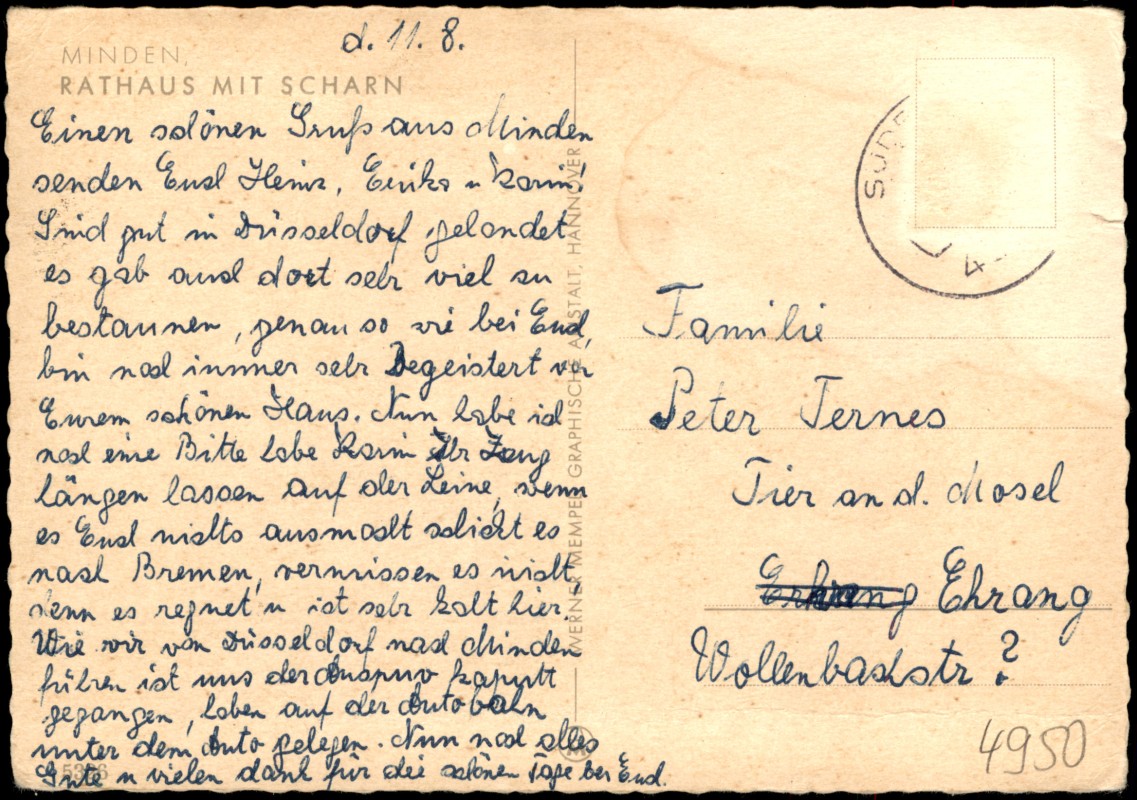 d. 11. 8.
MINDEN,
RATHAUS MIT SCHARN
Einen schönen Gruß aus Minden
senden Euch Heinz, Erika u Karin!
Sind gut in Düsseldorf gelandet
es gab auch dort sehr viel zu
bestaunen, genau so wie bei Euch,
bin noch immer sehr Begeistert von
Eurem schönen Haus. Nun habe ich
noch eine Bitte habe Karin Ihr Zeug
längen lassen auf der Leine, wenn
es Euch nichts ausmacht schickt es
nach Bremen, vermissen es nicht
denn es regnet u ist sehr kalt hier.
Wie wir von Düsseldorf nach Minden
führen ist uns der Auspuv kaputt
gegangen, haben auf der Autobahn
unter dem Auto gelegen. Nun noch alles
Gute u vielen dank für die schönen Tage bei Euch.
WERNER MEMPEL GRAPHISCHE ANSTALT, HANNOVER
Familie
Peter Ternes
Tier an d. Mosel
Ehrang
Wollenbachstr ?
4950